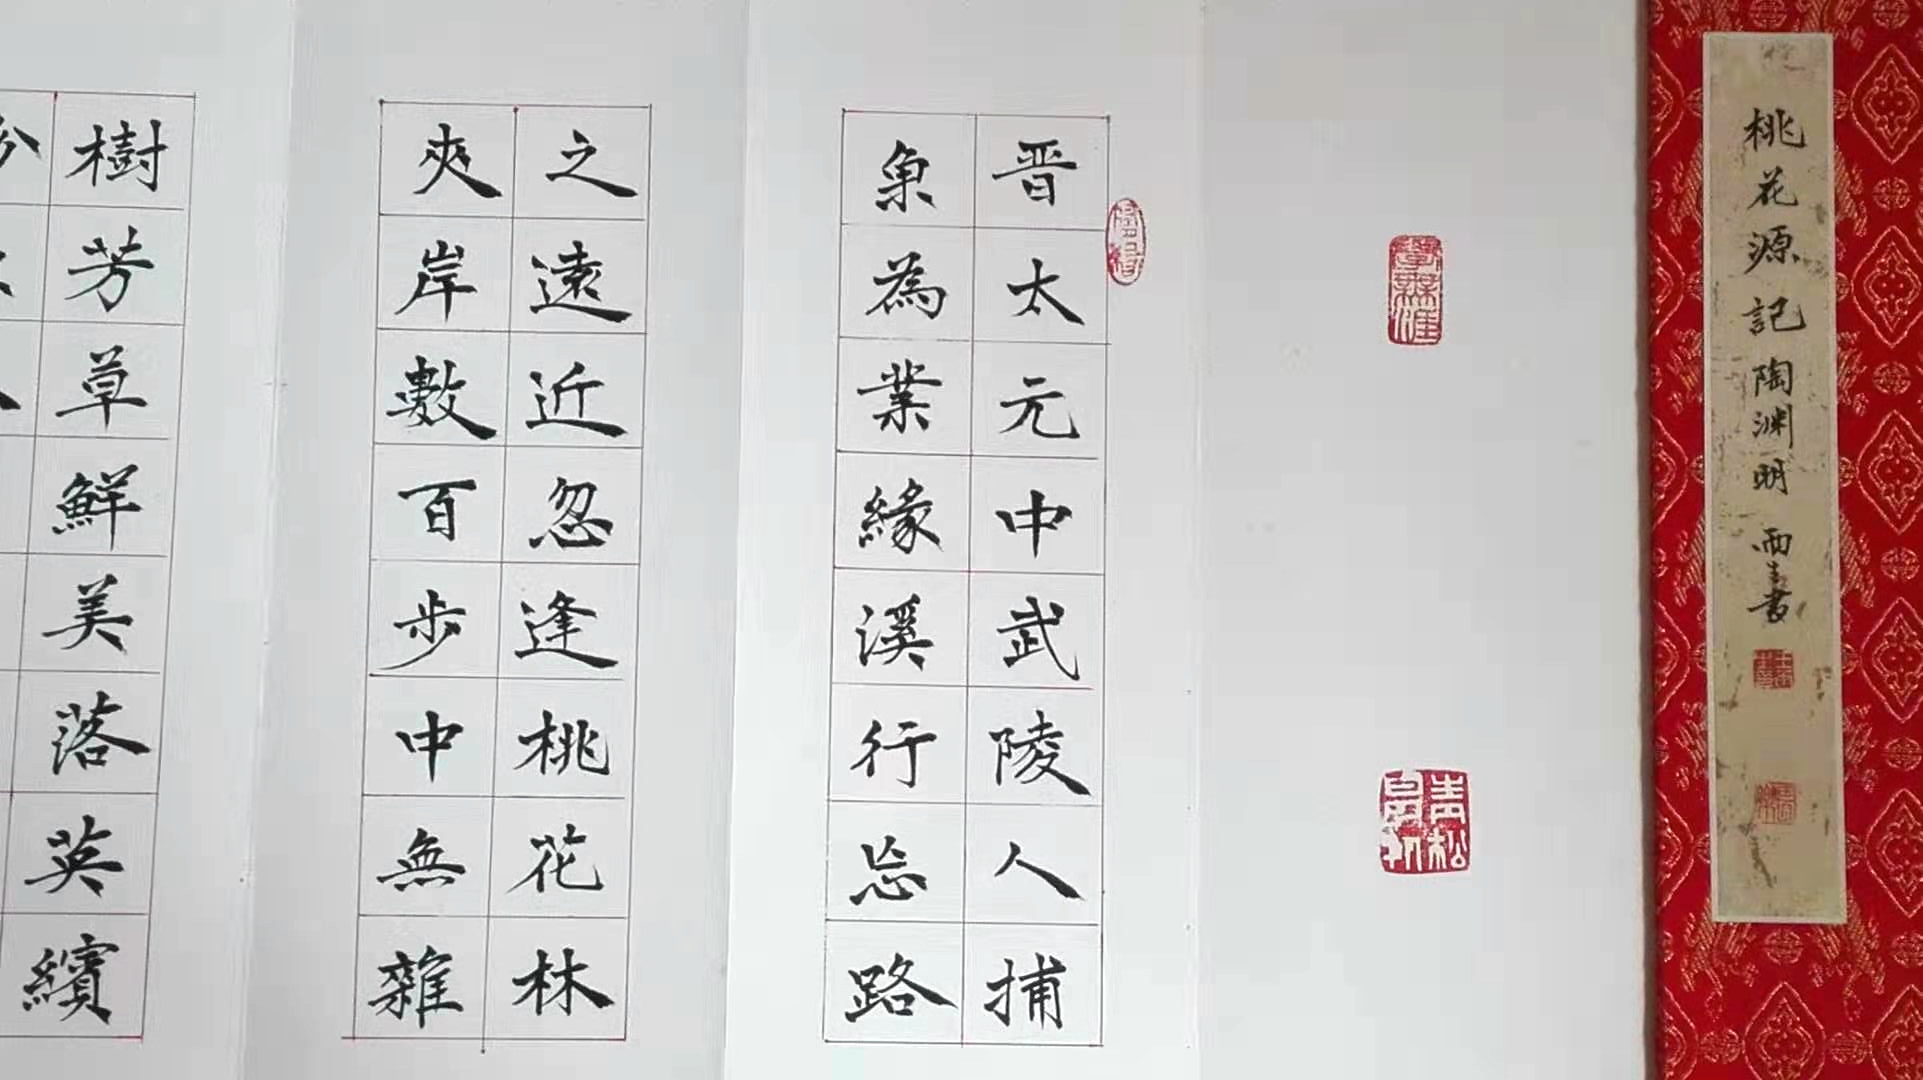 桃花源記 陶渊明 雨書
學無涯
晋太元中武陵人捕
魚為業緣溪行忘路
之遠近忽逢桃花林
夾岸數百步中無雜
樹芳草鮮美落英繽